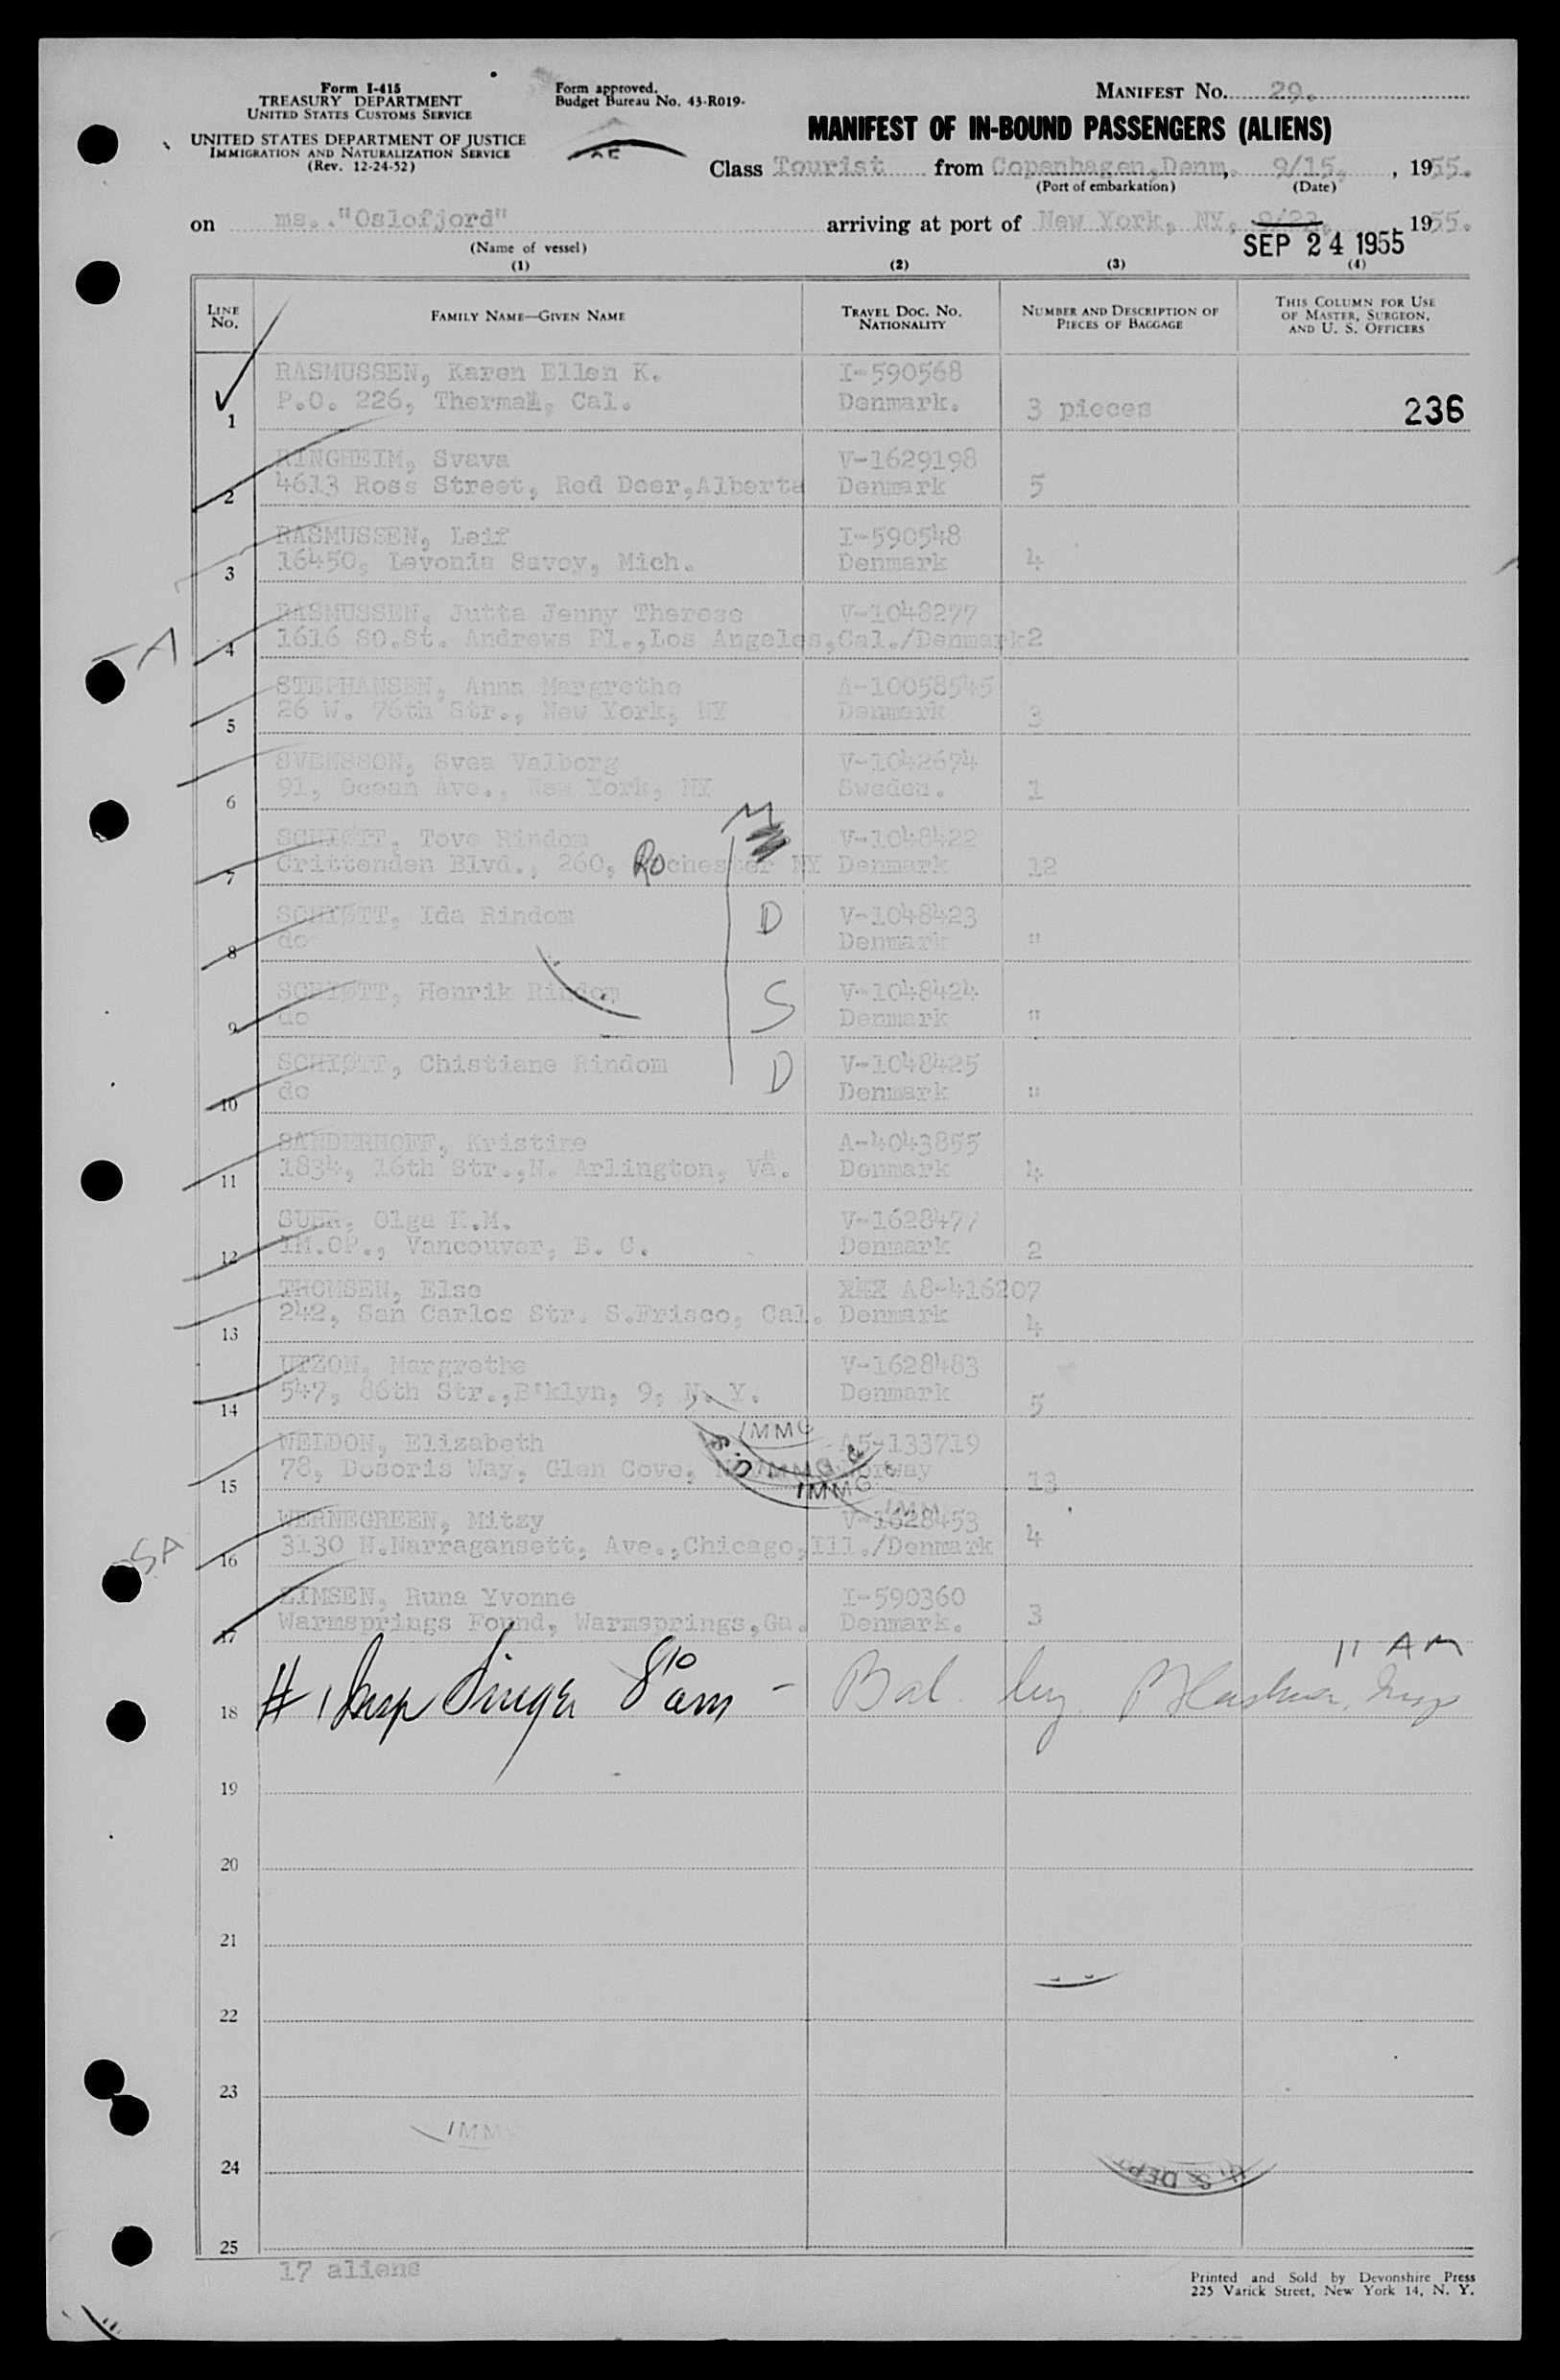 Form I-415
TREASURY DEPARTMENT
UNITED STATES CUSTOMS SERVICE
UNITED STATES DEPARTMENT OF JUSTICE
IMMIGRATION AND NATURALIZATION SERVICE
(Rev. 12-24-52)
Form approved.
Budget Bureau No. 43-R019.
MANIFEST No. 29.
MANIFEST OF IN-BOUND PASSENGERS (ALIENS)
Class Tourist from Copenhagen, Denm. 9/15, , 1955.
(Port of embarkation) (Date)
on ms. "Oslofjord" arriving at port of New York, NY, 9/23, 1955.
(Name of vessel) SEP 24 1955
(1) (2) (3) (4)
LINE No. FAMILY NAME—GIVEN NAME TRAVEL DOC. NO. NATIONALITY NUMBER AND DESCRIPTION OF PIECES OF BAGGAGE THIS COLUMN FOR USE OF MASTER, SURGEON, AND U. S. OFFICERS
RASMUSSEN, Karen Ellen K. I-590568
1 P.O. 226, Thermal, Cal. Denmark. 3 pieces 236
RINGHEIM, Svava V-1629198
2 4613 Ross Street, Red Deer,Alberta Denmark 5
RASMUSSEN, Leif I-590548
3 16450, Levonia Savoy, Mich. Denmark 4
RASMUSSEN, Jutta Jenny Therese V-1048277
4 1616 SO.St. Andrews Pl.,Los Angeles,Cal./Denmark 2
A
STEPHANSEN, Anna Margrethe A-10058545
5 26 W. 76th Str., New York, NY Denmark 3
SVENSSON, Svea Valborg V-1042674
6 91, Ocean Ave., New York, NY Sweden. 1
SCHIØTT, Tove Rindom M V-1048422
7 Crittenden Blvd., 260, Rochester NY Denmark 12
SCHIØTT, Ida Rindom D V-1048423
8 do Denmark "
SCHIØTT, Henrik Rindom S V-1048424
9 do Denmark "
SCHIØTT, Chistiane Rindom D V-1048425
10 do Denmark "
SANDERHOFF, Kristine A-4043855
11 1834, 16th Str.,N. Arlington, Va. Denmark 4
SUHR, Olga K.M. V-1628477
12 IM.OP., Vancouver, B. C. Denmark 2
THOMSEN, Else XXX A8-416207
13 242, San Carlos Str. S.Frisco, Cal. Denmark 4
UTZON, Margrethe V-1628483
14 547, 86th Str.,B'klyn, 9, N. Y. Denmark 5
WELDON, Elizabeth A5-133719
15 78, Dosoris Way, Glen Cove, Norway 13
IMMG
IMMG &
IMMG
WERNEGREEN, Mitzy V-1628453
16 3130 N.Narragansett, Ave.,Chicago,Ill./Denmark 4
SA
ZIMSEN, Runa Yvonne I-590360
17 Warmsprings Found, Warmsprings,Ga. Denmark. 3
11 AM
18 # 1 Insp Singer 8 10 am - Bal. by Insp
19
20
21
22
23
IMM
24
U. S. DEPT
25
17 aliens
Printed and Sold by Devonshire Press
225 Varick Street, New York 14, N. Y.